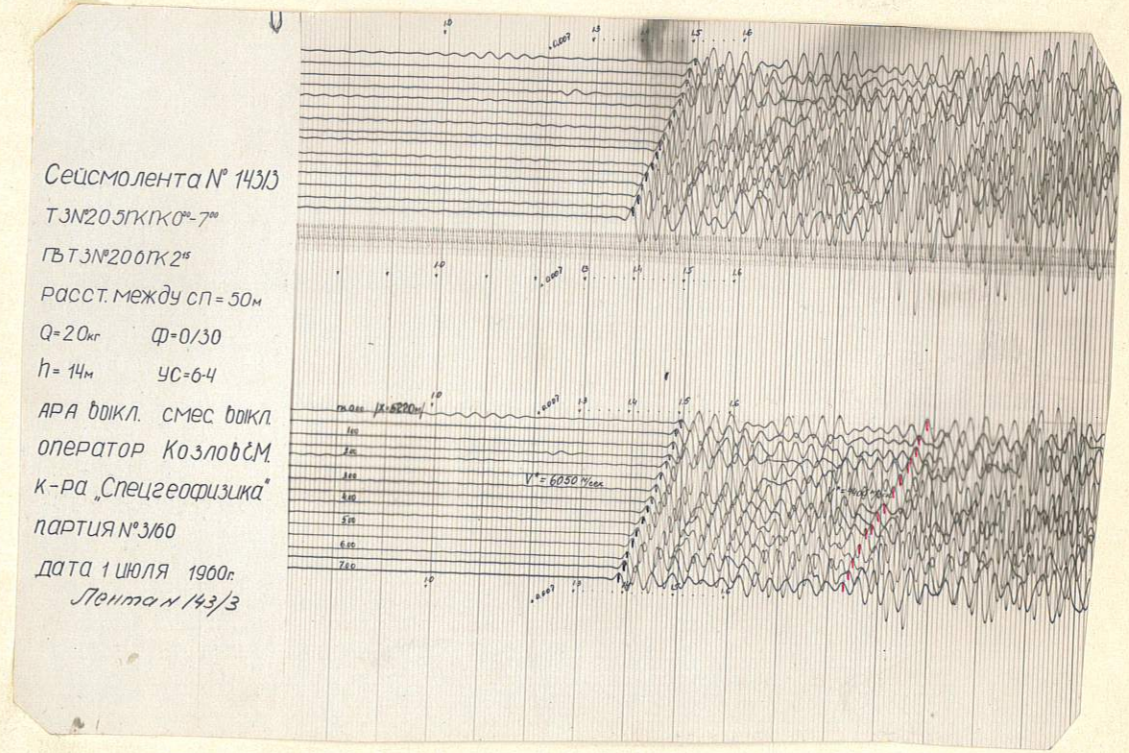 Сейсмолента № 143/3
ТЗ№205ПКПК0⁰⁰-7⁰⁰
ПВТЗ№206ПК2¹⁵
Расст. между СП = 50м
Q=20кг Ф=0/30
h= 14м УС=6-4
АРА ВЫКЛ. СМЕС ВЫКЛ.
ОПЕРАТОР Козлов Є.М.
К-РА „Спецгеофизика“
ПАРТИЯ №3/60
ДАТА 1 ИЮЛЯ 1960г.
Лента № 143/3
1.0 0.007 1.3 1.5 1.6
1.0 0.007 1.3 1.4 1.5 1.6
1.0 0.007 1.3 1.4 1.5 1.6
1.00
2.00
3.00
V* = 6050 м/сек
4.00
5.00
6.00
7.00
1.0 0.007 1.3 1.4 1.5